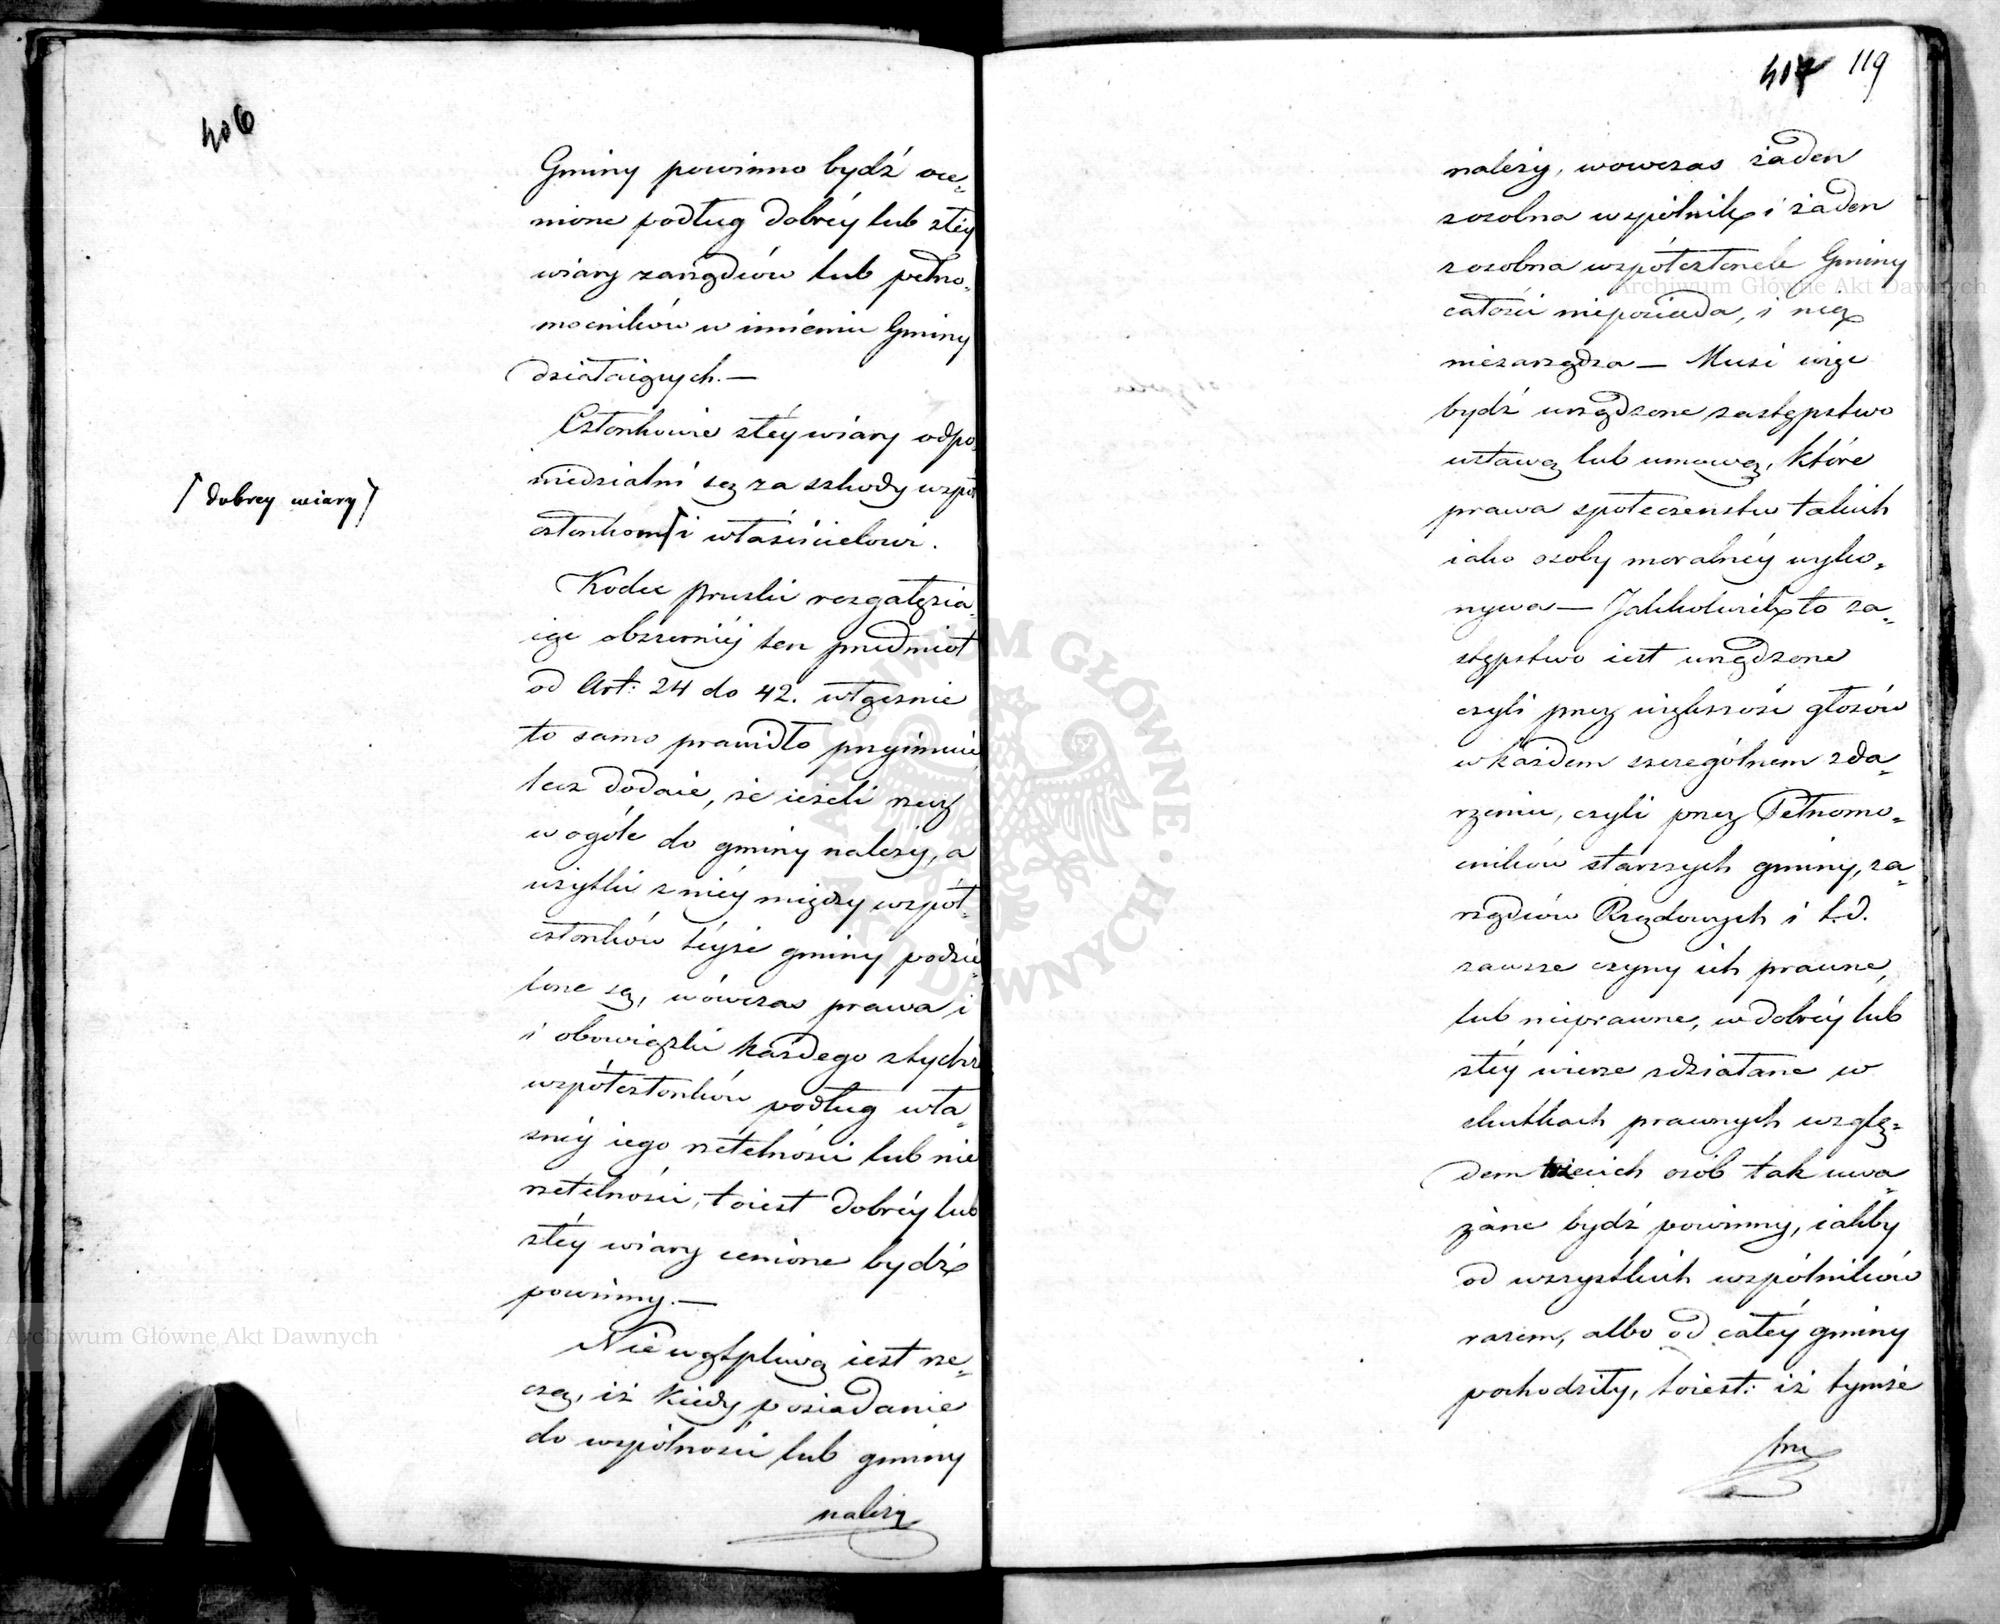 406
Gminy powinno bydź oce„
nione podług dobréy lub złéy
wiary zarządców lub pełno„
mocników w imieniu Gminy
działaiących.—
Członkowie złéy wiary odpo„
wiedzialni są za szkody współ
członkom⌈ i właścicielowi.
⌈dobrey wiary⌉
Kodex pruski rozgałęzia„
iąc obszerniéy ten przedmiot
od Art: 24 do 42. włącznie
to samo prawidło przyimuie,
lecz dodaie, że ieżeli rzecz
w ogóle do gminy należy, a
użytki z niéy między współ„
członków téyże gminy podzie„
lone są, wówczas prawa i
i obowiązki każdego z tychże
współczłonków podług wła„
snéy iego rzetelności lub nie
rzetelności, to iest dobréy lub
złéy wiary cenione bydź
powinny.—
Niewątpliwą iest rze„
czą, iż kiedy posiadanie
do wspólności lub gminy
należy
407 119
należy, wowczas żaden
zosobna wspólnik i żaden
zosobna współczłonek Gminy
całości nieposiada, i nią
niezarządza — Musi więc
bydź urządzone zastępstwo
ustawą lub umową, które
prawa społeczeństw takich
iako osoby moralnéy wyko„
nywa — Jakkolwiek to za„
stępstwo iest urządzone
czyli przez większość głosów
w każdem szczególnem zda„
rzeniu, czyli przez Pełnomo„
cników starszych gminy, za„
rządców Rządowych i t.d.
zawsze czyny ich prawne,
lub nieprawne, w dobréy lub
złéy wierze zdziałane w
skutkach prawnych wzglę„
dem trzecich osób tak uwa„
żane bydź powinny, iakby
od wszystkich wspólników
razem, albo od całéy gminy
pochodziły, to iest: iż tymże
Archiwum Główne Akt Dawnych
Archiwum Główne Akt Dawnych
ARCHIWUM GŁÓWNE AKT DAWNYCH